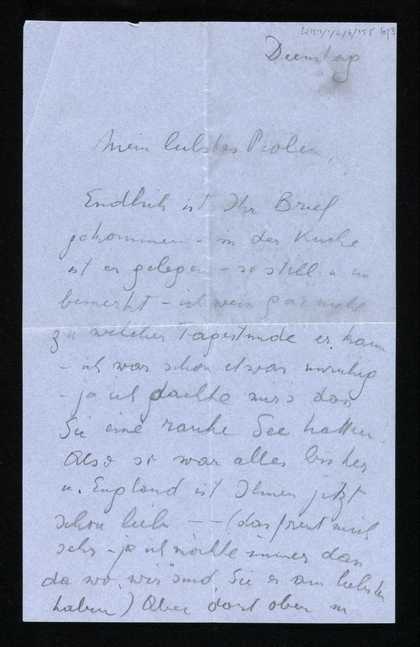 Dienstag
Mein liebstes
Endlich ist Ihr Brief
gekommen - in der Küche
ist er gelegen - so still u. un
bemerkt - ich weis gar nicht
zu welcher Tagesstunde er kam
- ich war schon etwas unruhig
- ja ich dachte mir dass
Sie eine rauhe See hatten.
Also so war alles bisher
u. England ist Ihnen jetzt
schon lieb -- (das freut mich
sehr - ja ich möchte immer dass
da wo "wir" sind Sie es am liebsten
haben) Aber dort oben in